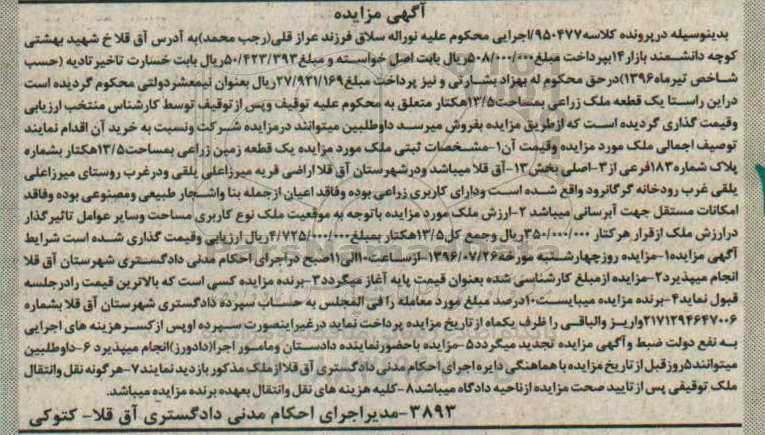 آگهی مزایده
بدینوسیله درپرونده کلاسه۹۵۰۴۷۷/اجرایی محکوم علیه نوراله سلاق فرزند عراز قلی(رجب محمد)به آدرس آق قلا خ شهید بهشتی
کوچه دانشمند بازار۱۴بپرداخت مبلغ۵۰۸/۰۰۰/۰۰۰ریال بابت اصل خواسته و مبلغ۵۰/۴۲۳/۳۹۳ریال بابت خسارت تاخیر تادیه (حسب
شاخص تیرماه۱۳۹۶)درحق محکوم له بهزاد بشارتی و نیز پرداخت مبلغ۲۷/۹۲۱/۱۶۹ریال بعنوان نیمعشردولتی محکوم گردیده است
دراین راستا یک قطعه ملک زراعی بمساحت۱۳/۵هکتار متعلق به محکوم علیه توقیف وپس ازتوقیف توسط کارشناس منتخب ارزیابی
وقیمت گذاری گردیده است که ازطریق مزایده بفروش میرسد داوطلبین میتوانند درمزایده شرکت ونسبت به خرید آن اقدام نمایند
توصیف اجمالی ملک مورد مزایده وقیمت آن۱-مشخصات ثبتی ملک مورد مزایده یک قطعه زمین زراعی بمساحت۱۳/۵هکتار بشماره
پلاک شماره۱۸۳فرعی از۳-اصلی بخش۱۳-آق قلا میباشد ودرشهرستان آق قلا اراضی قریه میرزاعلی یلقی ودرغرب روستای میرزاعلی
یلقی غرب رودخانه گرگانرود واقع شده است ودارای کاربری زراعی بوده وفاقد اعیان ازجمله بنا واشجار طبیعی ومصنوعی بوده وفاقد
امکانات مستقل جهت آبرسانی میباشد ۲-ارزش ملک مورد مزایده باتوجه به موقعیت ملک نوع کاربری مساحت وسایر عوامل تاثیرگذار
درارزش ملک ازقرار هرکتار ۳۵۰/۰۰۰/۰۰۰ریال وجمع کل۱۳/۵هکتار بمبلغ۴/۷۲۵/۰۰۰/۰۰۰ریال ارزیابی وقیمت گذاری شده است شرایط
آگهی مزایده۱-مزایده روزچهارشنبه مورخه۱۳۹۶/۰۷/۲۶-ازساعت۱۰الی۱۱صبح دراجرای احکام مدنی دادگستری شهرستان آق قلا
انجام میپذیرد۲-مزایده ازمبلغ کارشناسی شده بعنوان قیمت پایه آغاز میگردد۳-برنده مزایده کسی است که بالاترین قیمت رادرجلسه
قبول نماید۴-برنده مزایده میبایست۱۰درصد مبلغ مورد معامله را فی المجلس به حساب سپرده دادگستری شهرستان آق قلا بشماره
۲۱۷۱۲۹۴۶۴۷۰۰۶واریز والباقی را ظرف یکماه ازتاریخ مزایده پرداخت نماید درغیراینصورت سپرده اوپس ازکسرهزینه های اجرایی
به نفع دولت ضبط وآگهی مزایده تجدید میگردد۵-مزایده باحضورنماینده دادستان ومامور اجرا(دادورز)انجام میپذیرد ۶-داوطلبین
میتوانند۵روزقبل از تاریخ مزایده با هماهنگی دایره اجرای احکام مدنی دادگستری آق قلا ازملک مذکور بازدید نمایند۷-هرگونه نقل وانتقال
ملک توقیفی پس از تایید صحت مزایده ازناحیه دادگاه میباشد۸-کلیه هزینه های نقل وانتقال بعهده برنده مزایده میباشد.
۳۸۹۳-مدیراجرای احکام مدنی دادگستری آق قلا- کتوکی